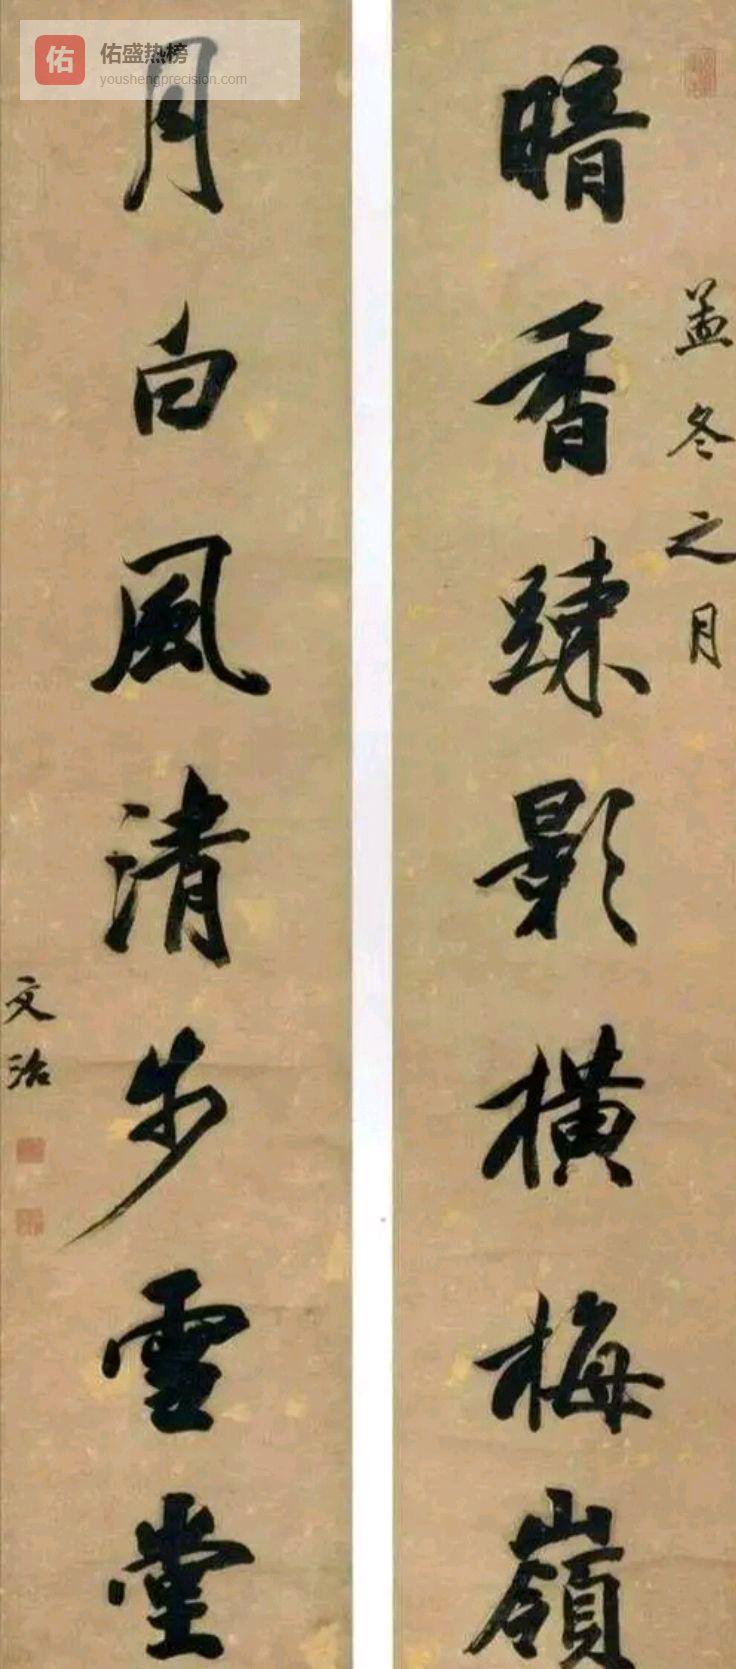 佑
佑盛热榜
youshengprecision.com
孟冬之月
暗香踈影橫梅嶺
月白風清步雪堂
文治